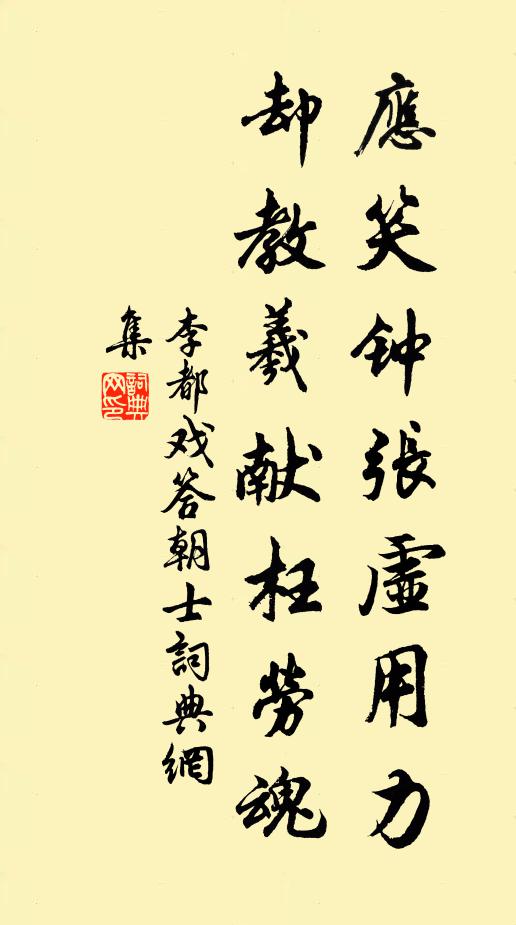 應笑钟張虛用力
却教羲献枉勞魂
李都戏答朝士詞典網
集
詞典网印